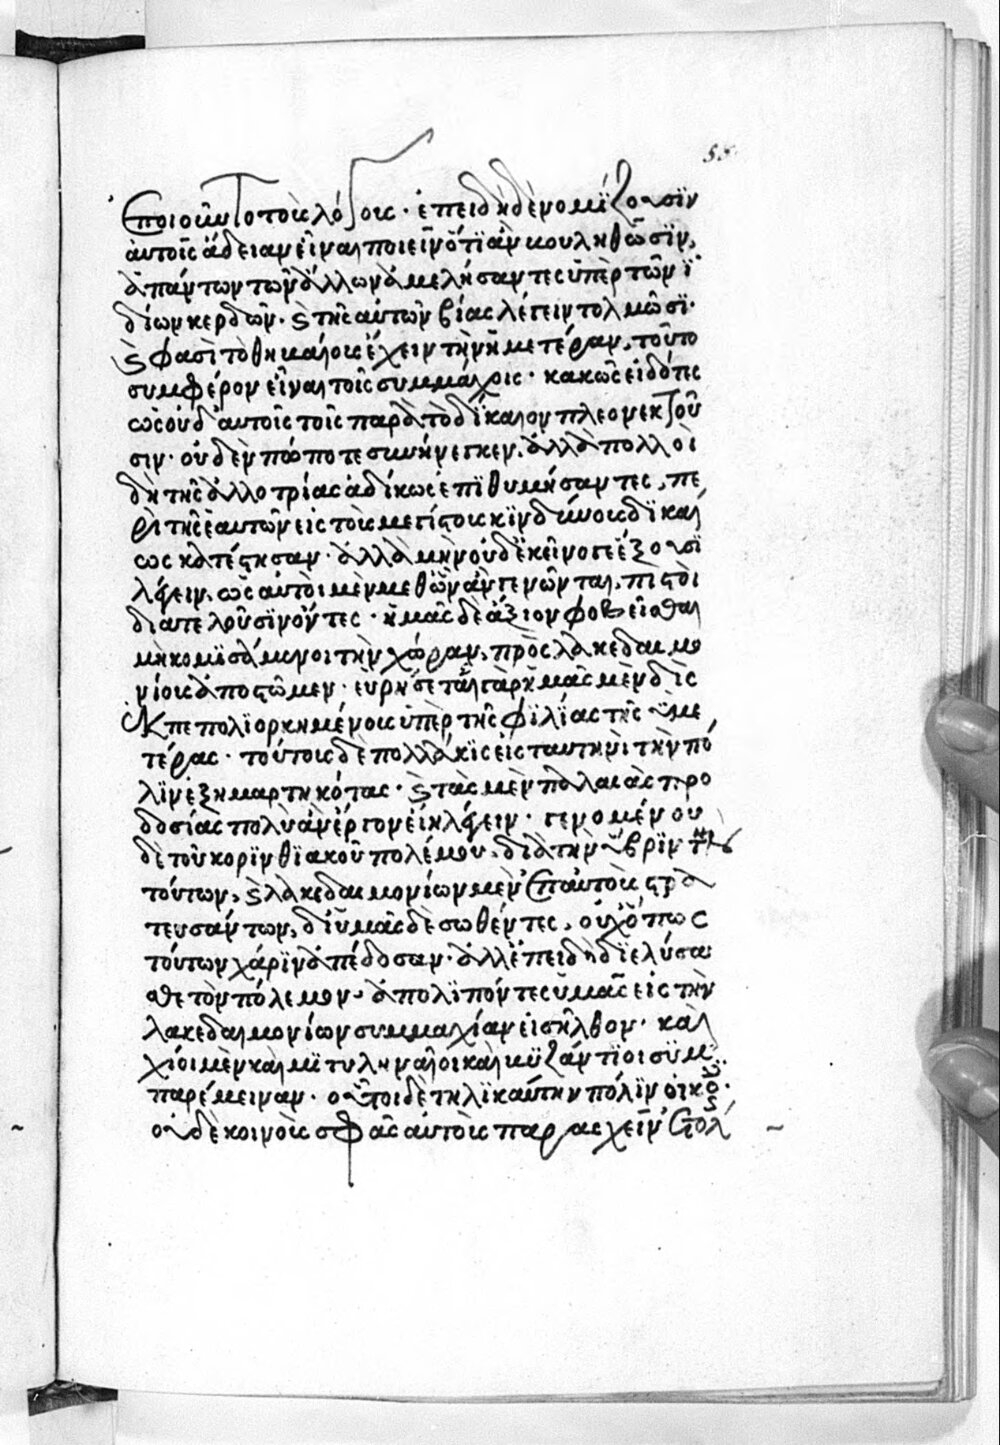 58
ἐποιοῦντο τοὺς λόγους · ἐπειδὴ δὲ νομίζουσϊν
αὐτοῖς ἄδειαν εἶναι ποιεῖν ὅ,τϊ ἂν βουληθῶσϊν,
ἁπάντων τῶν ἄλλων ἀμελήσαντες ὑπὲρ τῶν ἰ
δίων κερδῶν · καὶ τῆς αὑτῶν βίας λέγειν τολμῶσϊ ·
καὶ φασὶ τὸ θηβαίους ἔχειν τὴν ἡμετέραν, τοῦτο
συμφέρον εἶναι τοῖς συμμάχοις · κακῶς εἰδότες
ὡς οὐδ' αὐτοῖς τοῖς παρὰ τὸ δίκαιον πλεονεκτοῦ
σιν · οὐδὲν πώποτε συνήνεγκεν, ἀλλὰ πολλοὶ
δὴ τῆς ἀλλοτρίας ἀδίκως ἐπϊθυμήσαντες, πε
ρὶ τῆς ἑαυτῶν εἰς τοὺς μεγίστους κϊνδύνους δϊκαί
ως κατέστησαν · ἀλλὰ μὴν οὐδ' ἐκεῖνό γε ἕξουσϊ
λέγειν, ὡς αὐτοὶ μὲν μεθ' ὧν ἂν γενῶνται, πιστοὶ
διατελοῦσϊν ὄντες · ἡμᾶς δὲ ἄξιον φοβεῖσθαι
μὴ κομϊσάμενοι τὴν χώραν, πρὸς λακεδαιμο
νίους ἀποστῶμεν · εὑρήσετε γὰρ ἡμᾶς μὲν δὶς
ἐκπεπολιορκημένους ὑπὲρ τῆς φϊλίας τῆς ὑμε
τέρας · τούτους δὲ πολλάκϊς εἰς ταυτηνὶ τὴν πό
λϊν ἐξημαρτηκότας · καὶ τὰς μὲν παλαιὰς προ
δοσίας πολὺ ἂν ἔργον εἴη λέγειν · γενομένου
δὲ τοῦ κορϊνθϊακοῦ πολέμου, διὰ τὴν ὕβρϊν τὴν
τούτων, καὶ λακεδαιμονίων μὲν ἐπ' αὐτοὺς στρα
τευσάντων, δι' ὑμᾶς δὲ σωθέντες, οὐχ ὅπως
τούτων χάρϊν ἀπέδοσαν · ἀλλ' ἐπειδὴ δϊελύσα
σθε τὸν πόλεμον, ἀπολϊπόντες ὑμᾶς εἰς τὴν
λακεδαιμονίων συμμαχίαν εἰσῆλθον · καὶ
χῖοι μὲν καὶ μϊτυληναῖοι καὶ βυζάντϊοι συμ
παρέμειναν · οὗτοι δὲ τηλϊκαύτην πόλϊν οἰκοῦντες
οὐδὲ κοινοὺς σφᾶς αὐτοὺς παρασχεῖν ἐτόλ